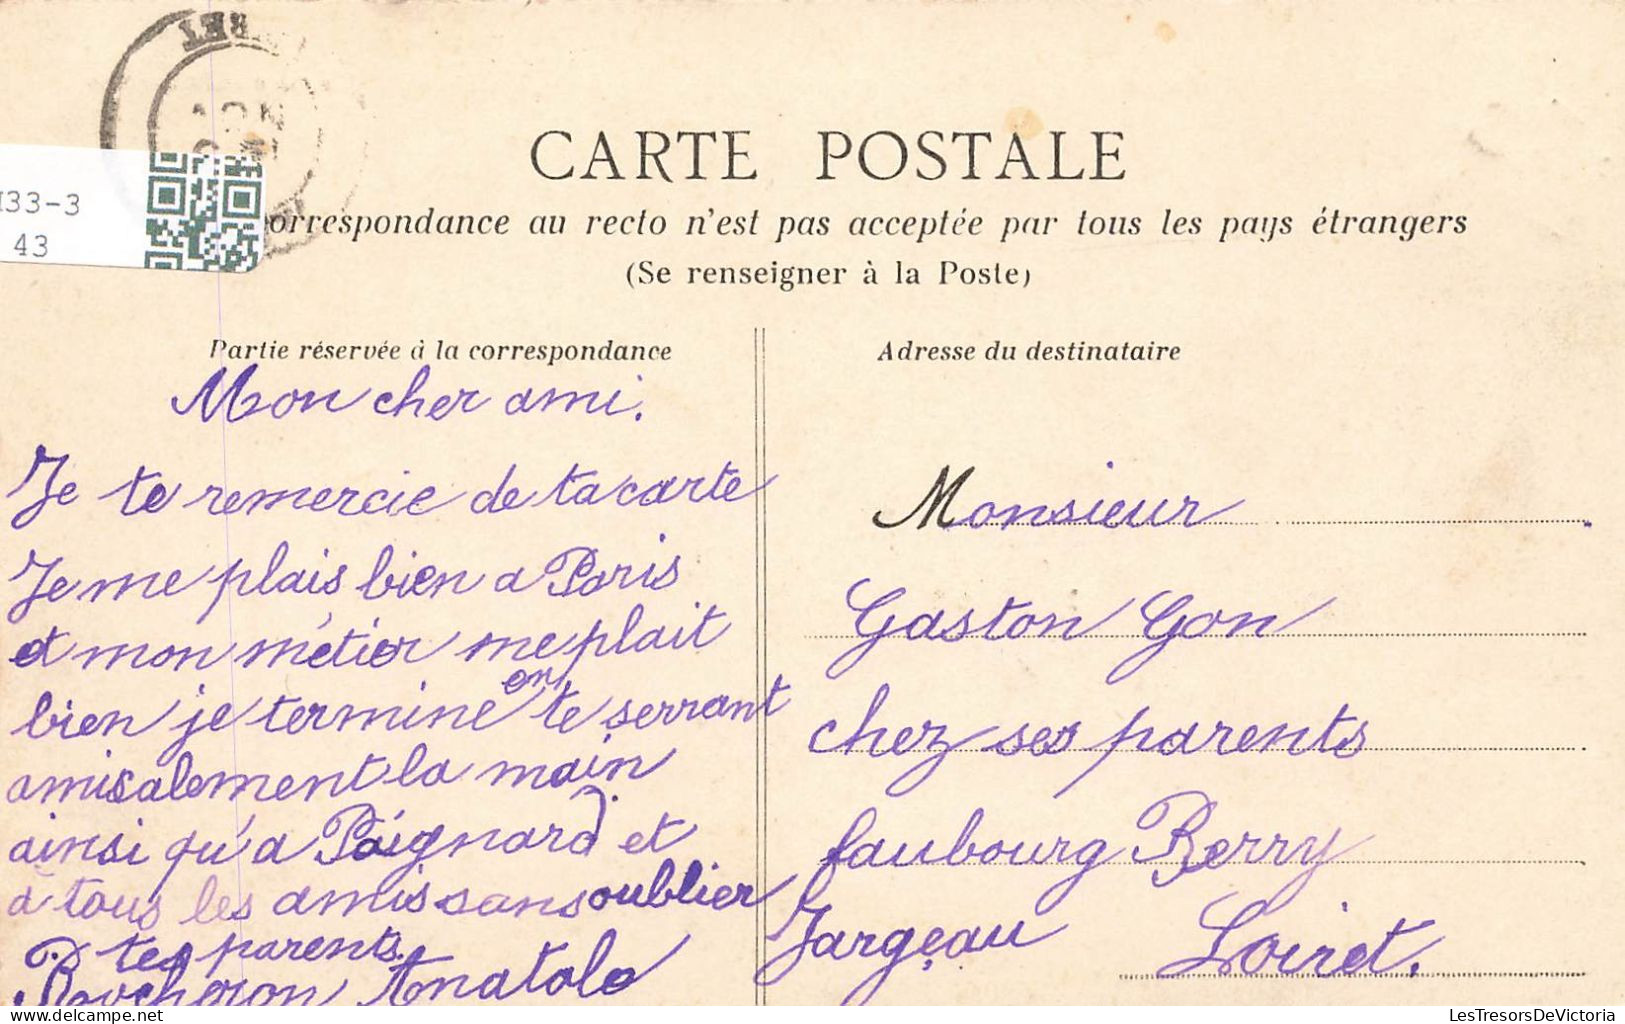 RET
133-3
43
CARTE POSTALE
orrespondance au recto n'est pas acceptée par tous les pays étrangers
(Se renseigner à la Poste)
Partie réservée à la correspondance
Mon cher ami.
Je te remercie de ta carte
Je me plais bien a Paris
et mon métier me plait
bien je termine en te serrant
amicalement la main
ainsi qu'a Paignard et
à tous les amis sans oublier
tes parents.
Boucheron Anatole
Adresse du destinataire
Monsieur
Gaston Gon
chez ses parents
faubourg Berry
Jargeau Loiret.
LesTresorsDeVictoria